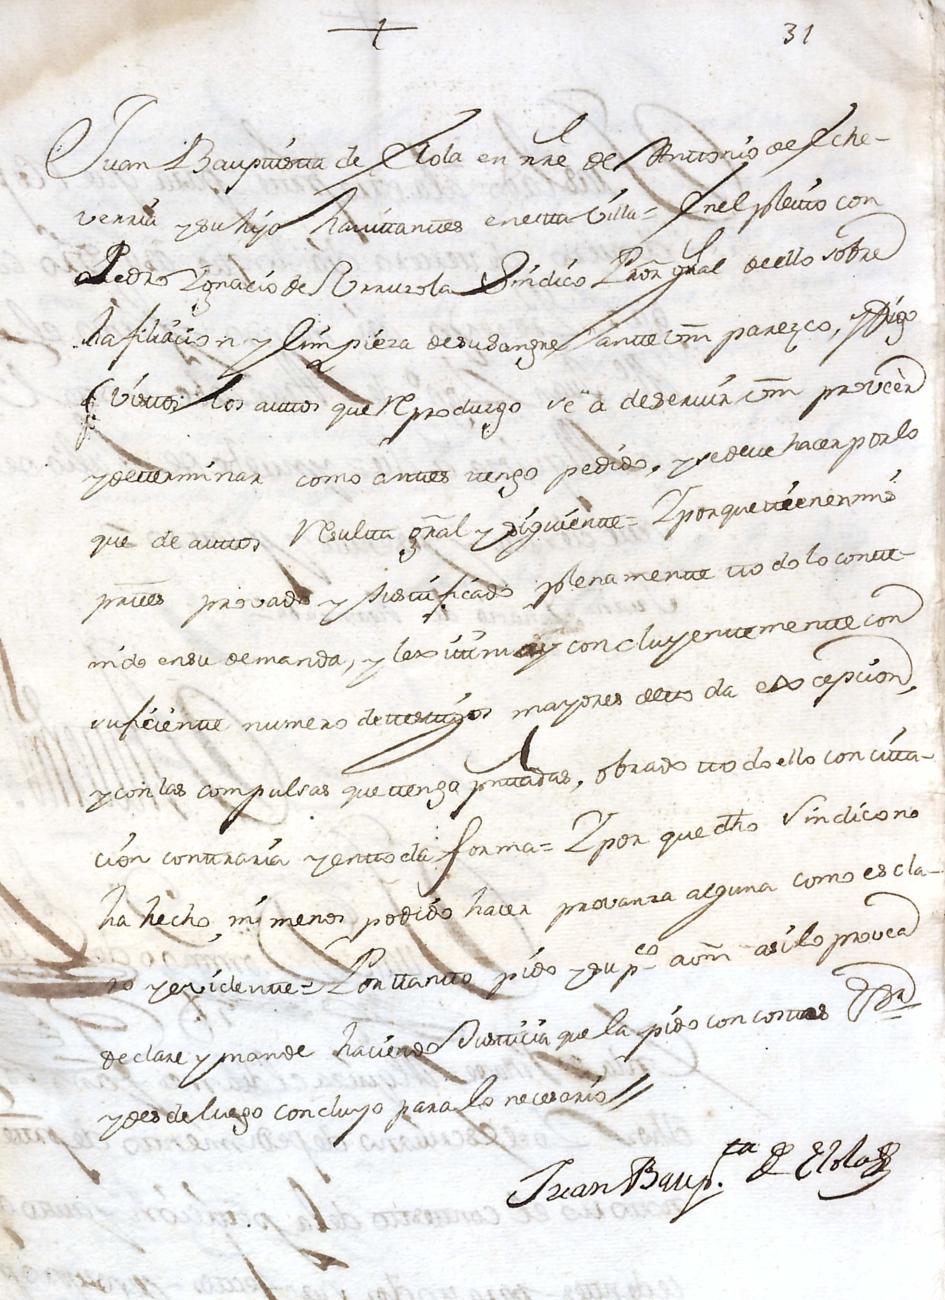 31
Juan Bauptista de Elola en nre de Antonio de Eche-
verria y su hijo havitantes en esta Villa = En el pleito con
Pedro Ygnacio de Urruzola Sindico Prōr gnal de ello sobre
la filiacion y limpieza de su sangre ante Vm parezco, y Digo
Vistos los autos que Reproduzgo se a de servir Vm proveer
y determinar como antes tengo pedido, y se deve hacer por lo
que de autos Resulta gral y siguiente = Y porque tienen mis
partes provado y Justificado plenamente todo lo conte-
nido en su demanda, y lexitima y concluyentemente con
suficiente numero de testigos mayores de toda excepcion,
y con las compulsas que tengo pntadas, obrado todo ello con citta-
cion contraria y en toda forma = Y por que dho Sindico no
ha hecho, ni menos podido hacer provanza alguna como es cla-
ro y evidente = Por tanto pido y supco a Vm asi lo provea
declare y mande haciendo Justicia que la pido con costas
y desde luego concluyo para lo necesario //
Juan Baupta de Elola